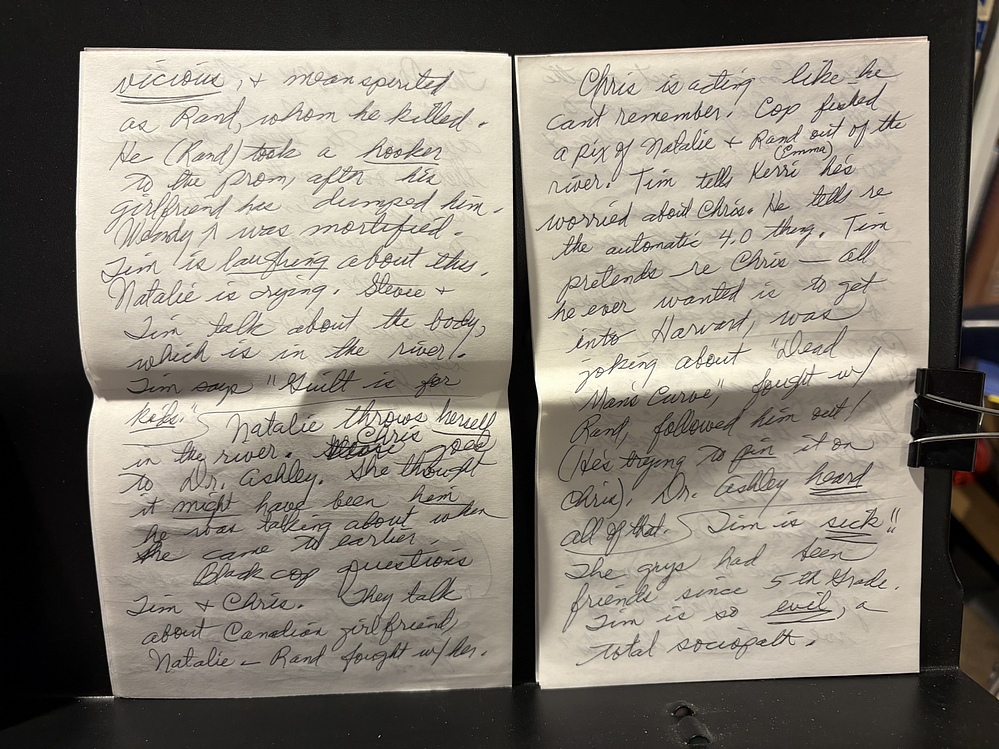 vicious, + meanspirited
as Rand, whom he killed.
He (Rand) took a hooker
to the prom, after his
girlfriend has dumped him.
Wendy A was mortified.
Tim is laughing about this.
Natalie is crying. Steve +
Tim talk about the body,
which is in the river.
Tim says "Guilt is for
kids." Natalie throws herself
in the river. Chris goes
to Dr. Ashley. She thought
it might have been him
he was talking about when
she came to earlier.
Black cop questions
Tim + Chris. They talk
about Canadian girlfriend,
Natalie – Rand fought w/ her.
Chris is acting like he
cant remember. Cop fished
a pix of Natalie + Rand out of the
river. Tim tells Kerri (Emma) he's
worried about Chris. He tells re
the automatic 4.0 thing. Tim
pretends re Chris – all
he ever wanted is to get
into Harvard, was
joking about "Dead
Man's Curve", fought w/
Rand, followed him out!
(He's trying to pin it on
Chris). Dr. Ashley heard
all of that. Tim is sick!!
The guys had been
friends since 5th Grade.
Tim is so evil, a
total sociopath.